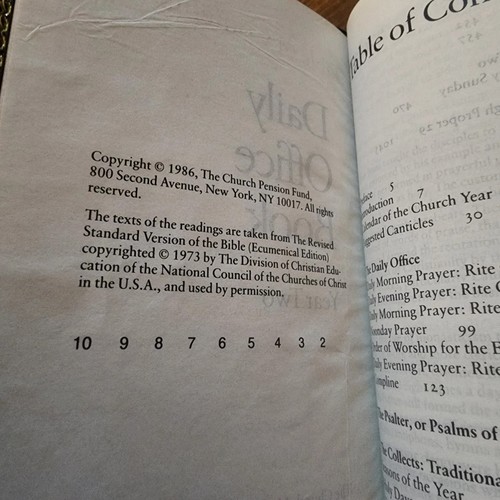 Copyright © 1986, The Church Pension Fund,
800 Second Avenue, New York, NY 10017. All rights
reserved.
The texts of the readings are taken from The Revised
Standard Version of the Bible (Ecumenical Edition)
copyrighted © 1973 by The Division of Christian Edu-
cation of the National Council of the Churches of Christ
in the U.S.A., and used by permission.
10 9 8 7 6 5 4 3 2
Daily
Office
Book
Year Two
Table of
5
7
of the Church Year
Canticles 30
The Daily Office
Morning Prayer: Rite
Evening Prayer: Rite
Morning Prayer: Rite
Prayer 99
of Worship for the
Evening Prayer: Rite
123
Psalter, or Psalms of
Collects: Traditional
of the Year